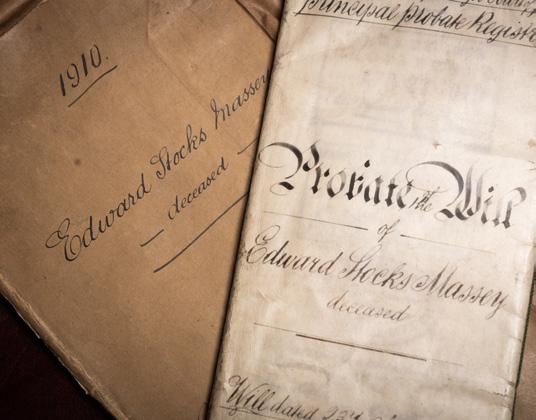 1910.
Edward Stocks Massey
deceased
Principal Probate Registry
Probate of the Will
of
Edward Stocks Massey
deceased
Will dated